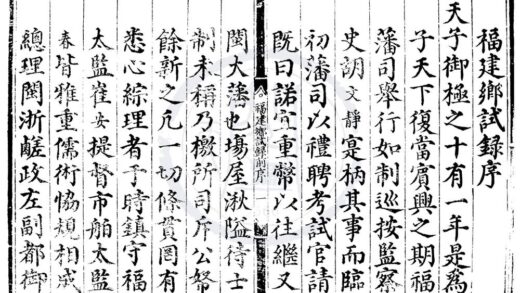 福建鄉試錄序
天子御極之十有一年是爲
子天下復當賓興之期福
藩司舉行如制巡按監察
史胡文靜寔柄其事而臨
初藩司以禮聘考試官請
既曰諾宜重幣以往繼又
福建鄉試錄前序
閩大藩也場屋湫隘待士
制未稱乃檄所司斥公帑
餘新之凡一切條貫罔有
悉心綜理者予時鎮守福
太監崔安提督市舶太監
春皆雅重儒術恊規相成
總理閩浙鹺政左副都御